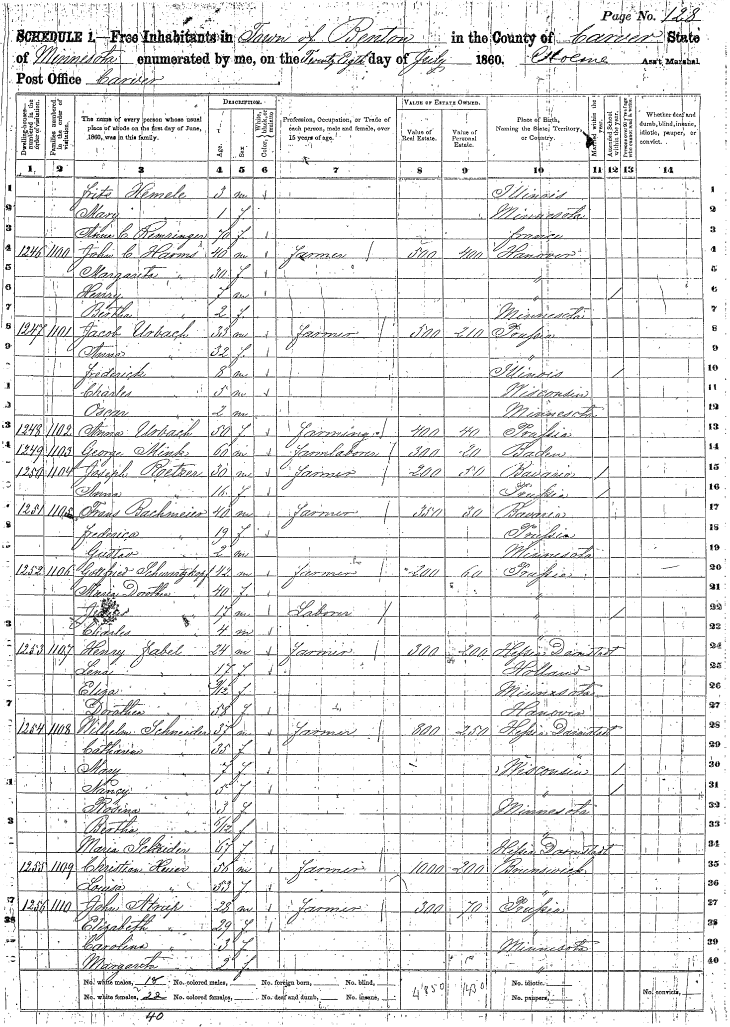 Page No. 128
SCHEDULE 1.—Free Inhabitants in Town of Benton in the County of Carver State
of Minnesota enumerated by me, on the Twenty Eigth day of July 1860. Ass't Marshal.
Post Office Carver
Dwelling-houses—numbered in the order of visitation. Families numbered in the order of visitation. The name of every person whose usual place of abode on the first day of June, 1860, was in this family. DESCRIPTION. Age. Sex. Color, White, black, or mulatto. Profession, Occupation, or Trade of each person, male and female, over 15 years of age. VALUE OF ESTATE OWNED. Value of Real Estate. Value of Personal Estate. Place of Birth, Naming the State, Territory, or Country. Married within the year. Attended School within the year. Whether deaf and dumb, blind, insane, idiotic, pauper, or convict.
1 2 3 4 5 6 7 8 9 10 11 12 13 14
1 Frits Hemele 3 m Illinois 1
2 Mary 1 f Minnesota 2
3 C Remringer 70 f France 3
4 1246 1100 John C Harms 40 m Farmer / 500 400 Hanover 4
5 Margarita " 30 f " 5
6 Henry " 7 m " / 6
7 Bertha " 2 f Minnesota 7
8 1247 1101 Jacob Urbach 33 m Farmer / 500 210 Prussia 8
9 Anna " 32 f " 9
Frederick " 8 m Illinois / 10
1 Charles " 5 m Wisconsin 11
Oscar " 2 m Minnesota 12
3 1248 1102 Anna Urbach 50 f Farming / 400 40 Prussia 13
4 1249 1103 George Mink 60 m Farmlaborer / 300 20 Baden 14
5 1250 1104 Joseph Roetzer 30 m Farmer / 200 50 Bavaria / 15
Anna " 16 f Prussia / 16
1251 1105 Frans Bachmeier 40 m Farmer / 350 30 Bavaria 17
Frederica " 19 f Prussia 18
Gustav " 2 m Minnesota 19
1252 1106 Gottfried Schwartzkopf 42 m Farmer / 200 60 Prussia 20
Maria Dorothe 40 f " 21
17 m Laborer / " / 22
3 Charles 4 m "
1253 1107 Henry Zabel 24 m Farmer / 300 200 Hessia Darmstadt 24
Lena " 17 f Holland 25
Eliza " /12 f Minnesota 26
7 Dorothea " 58 f Hanover 27
1254 1108 Wilhelm Schneider 37 m Farmer / 800 250 Hessia Darmstadt 28
Catharine 35 f " 29
Mary " 7 f Wisconsin / 30
1 Nancy " 5 f " / 31
Rosina " 3 f Minnesota 32
3 Bertha " /12 f " 33
Maria Schneider 67 f Hessia Darmstadt 34
1255 1109 Christian Heuer 56 m Farmer / 1000 200 Brunswick 35
Louisa " 53 f " 36
37 1256 1110 John Strup 28 m Farmer / 300 70 Prussia 27
38 Elizabeth " 29 f " 38
Carolina " 3 f Minnesota 39
Margareta " 2 f " 40
No. white males, 18 No. colored males, No. foreign born, No. blind, 4850 No. idiotic, No. convicts,
No. white females, 22 No. colored females, No. deaf and dumb, No. insane, No. paupers,
40